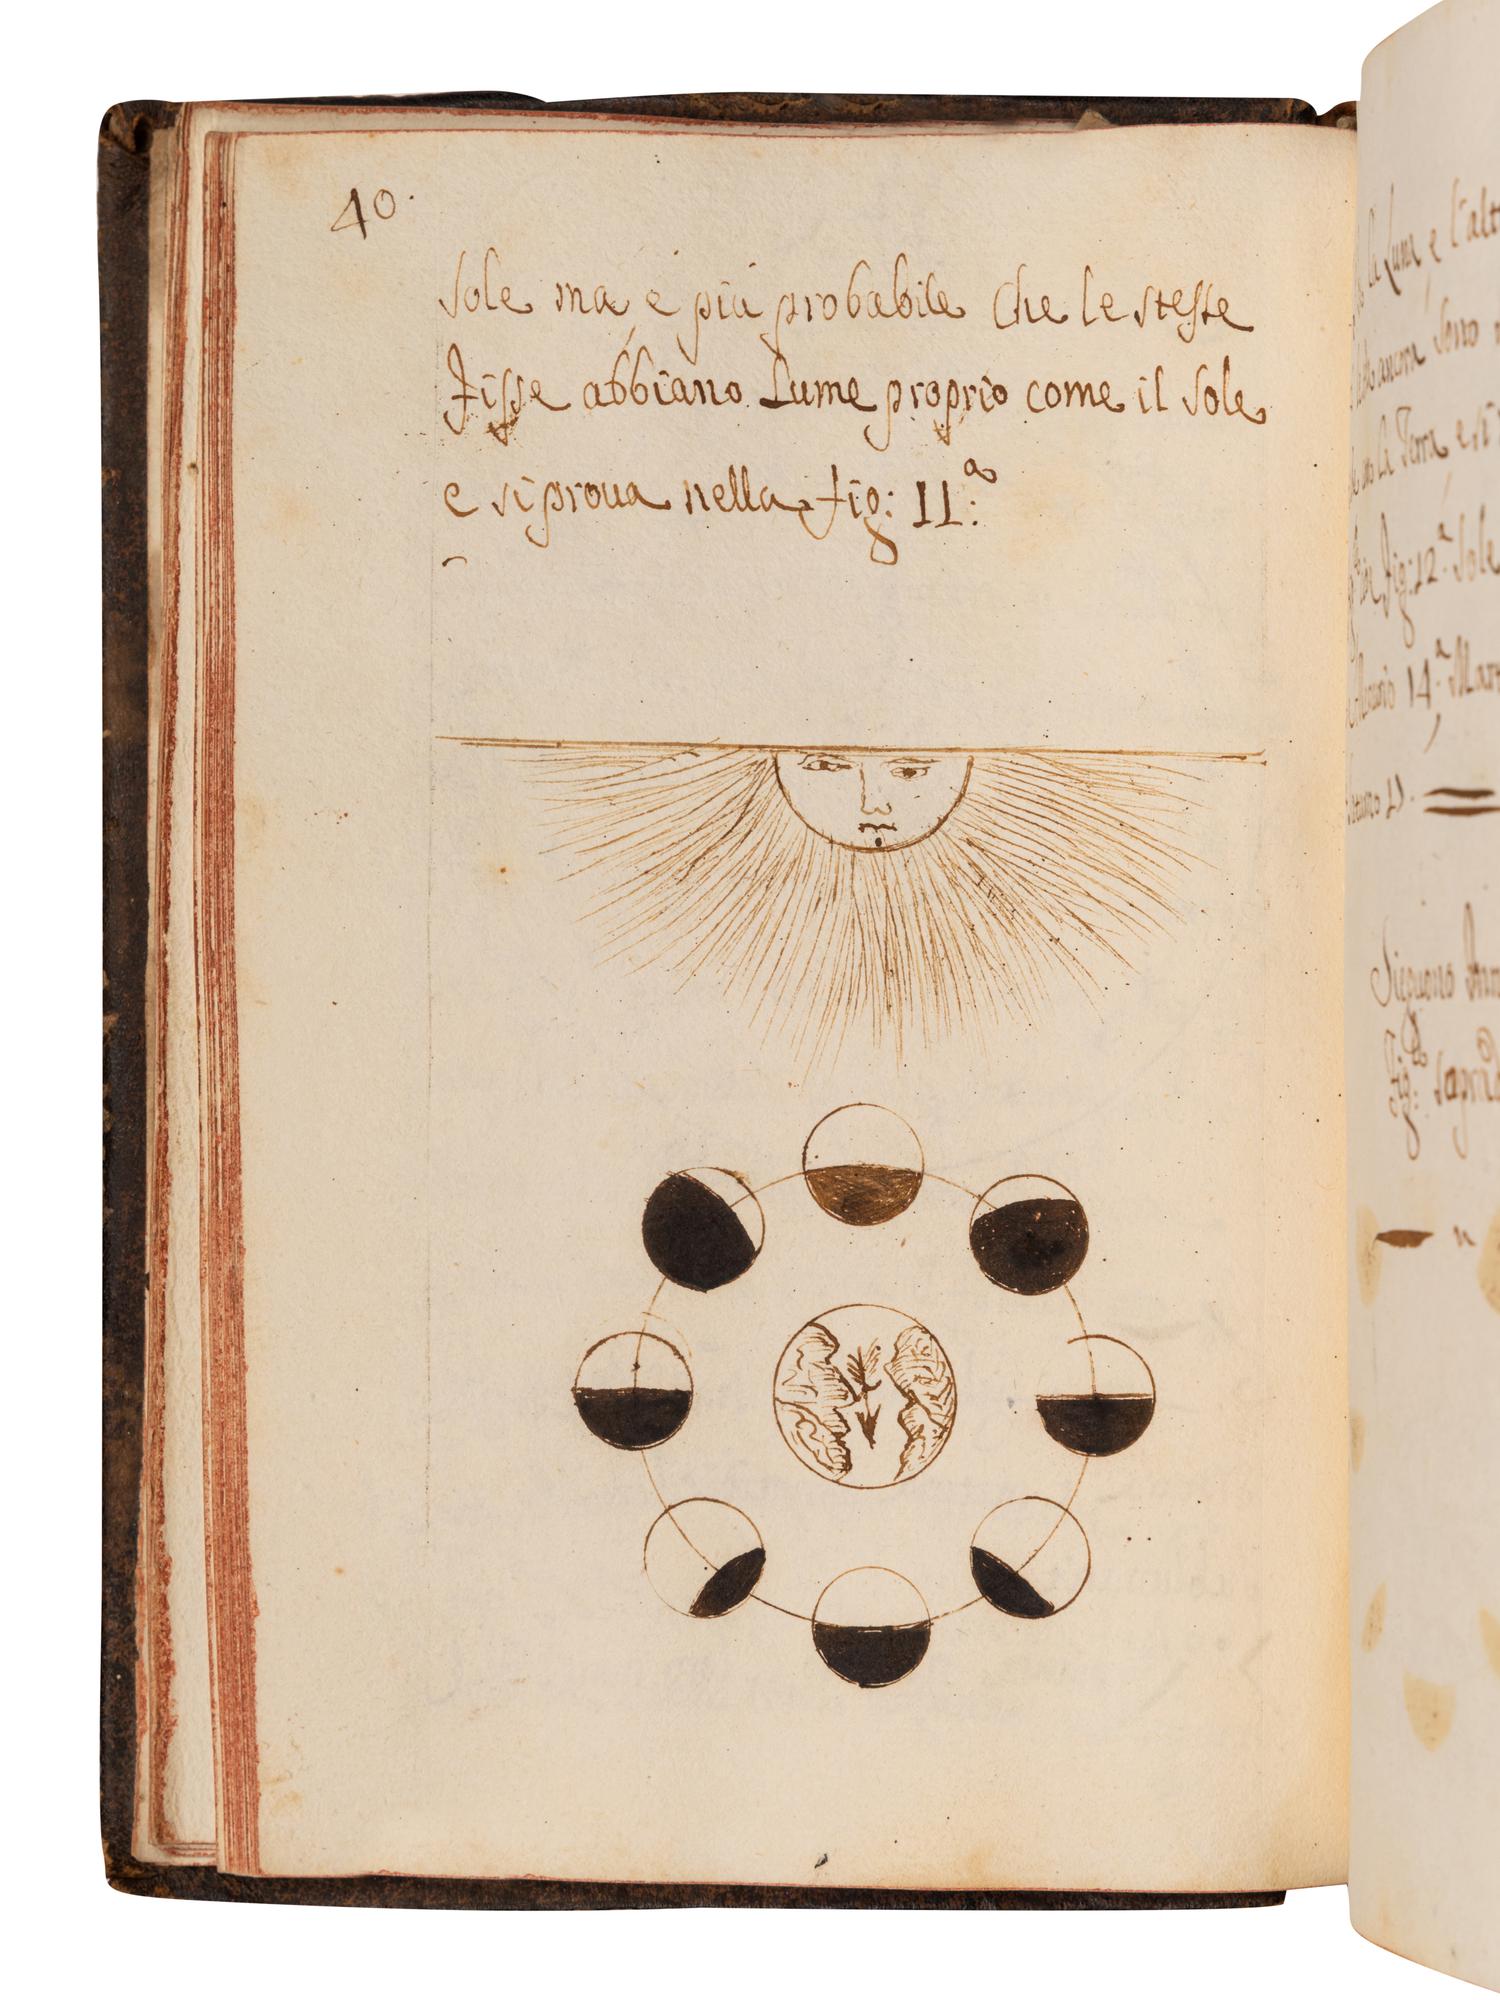 40.
sole ma è più probabile che le stesse
fisse abbiano Lume proprio come il sole
e si proua nella fig: 11:a
la Luna e l'alt
ancora sono
la Terra e si
fig: 12a. Sole
14a. Mar
Sieguono
fig: